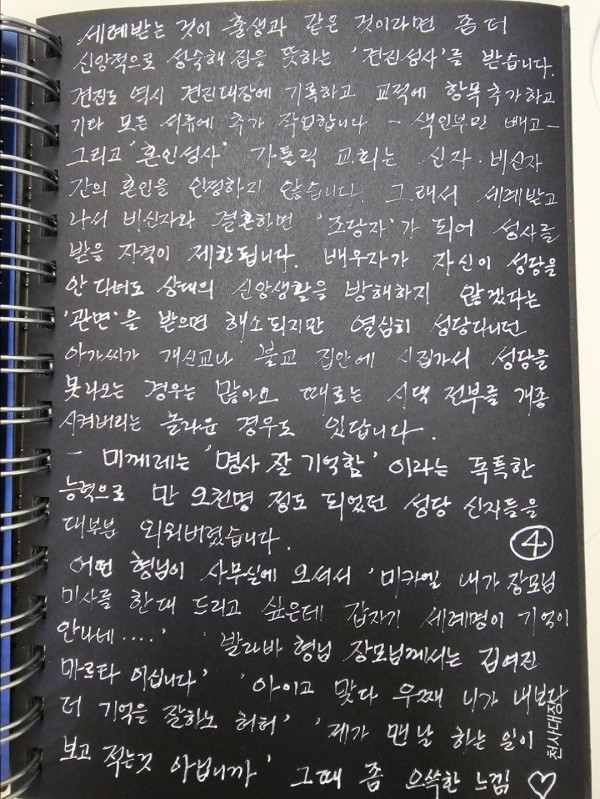 세례받는 것이 출생과 같은 것이라면 좀 더
신앙적으로 성숙해 짐을 뜻하는 '견진성사'를 받습니다.
견진도 역시 견진대장에 기록하고 교적에 항목 추가하고
기타 모든 서류에 추가 작업합니다 - 색인부만 빼고 -
그리고 "혼인성사" 가톨릭 교회는 신자·비신자
간의 혼인을 인정하지 않습니다. 그래서 세례받고
나서 비신자와 결혼하면 '조당자'가 되어 성사를
받을 자격이 제한됩니다. 배우자가 자신이 성당을
안 다녀도 상대의 신앙생활을 방해하지 않겠다는
'관면'을 받으면 해소되지만 열심히 성당다니던
아가씨가 개신교나 불교 집안에 시집가서 성당을
못나오는 경우는 많아요 때로는 시댁 전부를 개종
시켜버리는 놀라운 경우도 있답니다.
- 미께레는 '명사 잘 기억함' 이라는 독특한
능력으로 만 오천명 정도 되었던 성당 신자들을
대부분 외워버렸습니다. ④
어떤 형님이 사무실에 오셔서 '미카엘 내가 장모님
미사를 한대 드리고 싶은데 갑자기 세례명이 기억이
안나네....' '발라바 형님 장모님께서는 김여진
마르타 이십니다' '아이고 맞다 우째 니가 내보다
더 기억을 잘하노 허허' '제가 맨날 하는 일이
보고 적는것 아닙니까' 그때 좀 으쓱한 느낌 ♡
천사대장